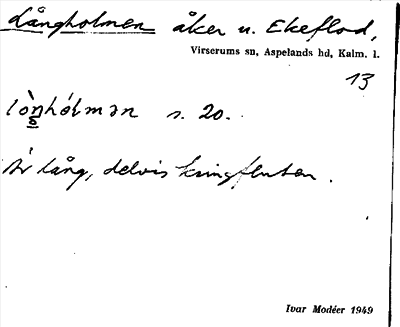 Långholmen åker u. Ekeflod,
Virserums sn, Aspelands hd, Kalm. l.
13
lò̀ŋhólmən s. 20.
Är lång, delvis kringfluten.
Ivar Modéer 1949